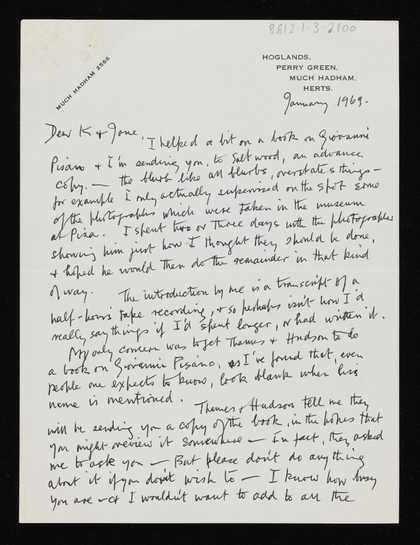 8812.1.3.2100
MUCH HADHAM 2566
HOGLANDS,
PERRY GREEN,
MUCH HADHAM,
HERTS.
January 1969.
Dear K & Jane,
I helped a bit on a book on Giovanni
Pisano & I'm sending you, to Saltwood, an advance
copy. — the blurb like all blurbs, overstates things —
for example I only actually supervised on the spot some
of the photographs which were taken in the museum
at Pisa. I spent two or three days with the photographer
showing him just how I thought they should be done,
& hoped he would then do the remainder in that kind
of way. The introduction by me is a transcript of a
half-hours tape recording, & so perhaps isn't how I'd
really say things if I'd spent longer, or had written it.
My only concern was to get Thames & Hudson to do
a book on Giovanni Pisano, as I've found that, even
people one expects to know, look blank when his
name is mentioned. Thames & Hudson tell me they
will be sending you a copy of the book, in the hopes that
you might review it somewhere — In fact, they asked
me to ask you — But please don't do anything
about it if you don't wish to — I know how busy
you are — & I wouldn't want to add to all the